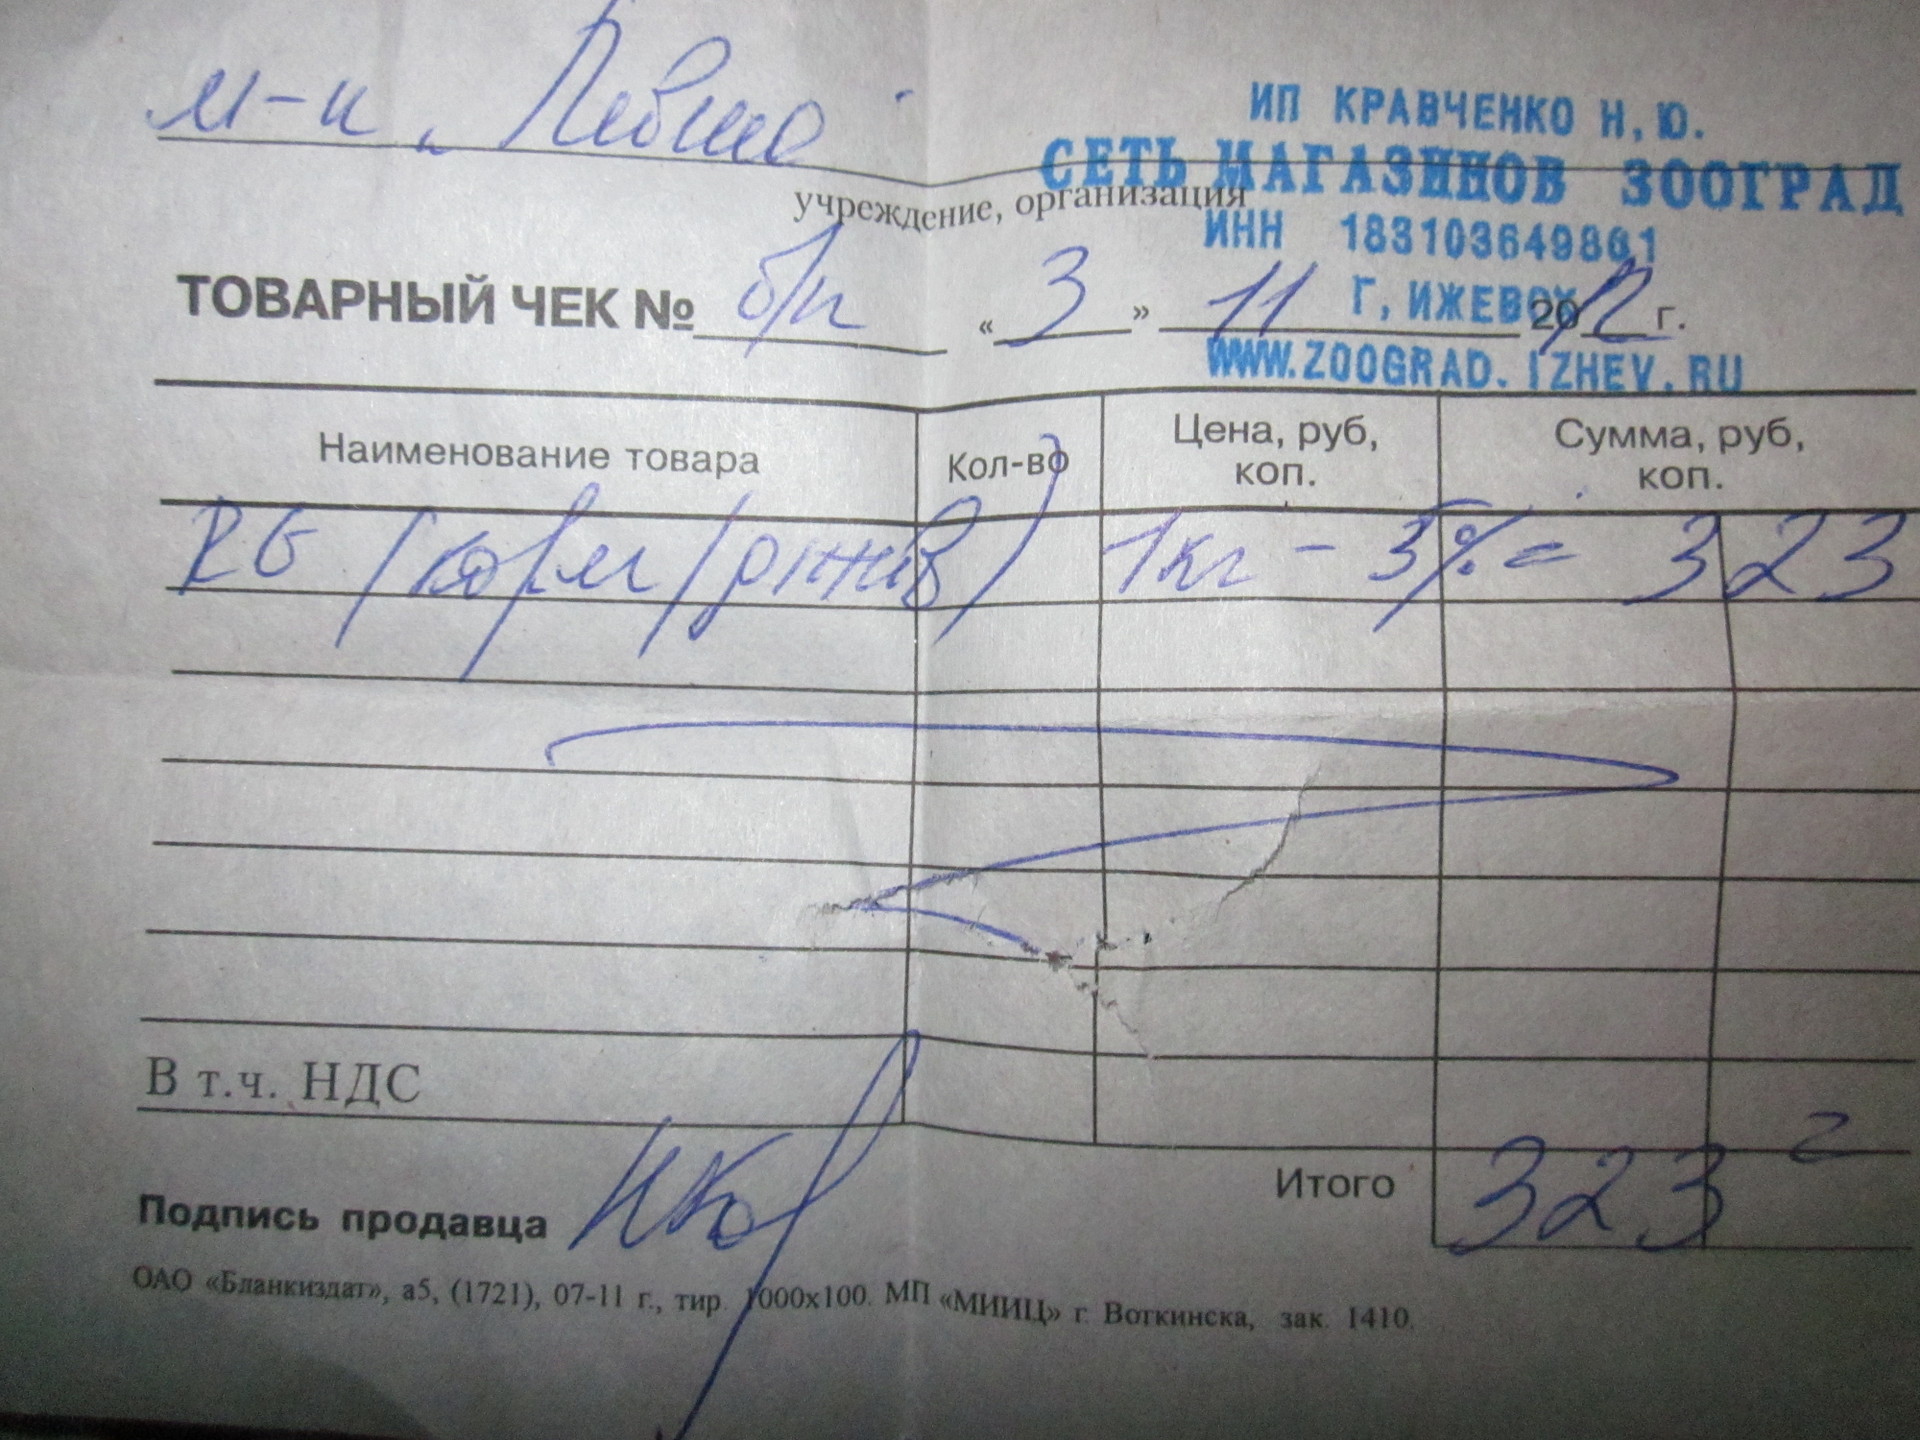 м-н "
ИП КРАВЧЕНКО Н, Ю.
СЕТЬ МАГАЗИНОВ ЗООГРАД
учреждение, организация
ИНН 183103649861
ТОВАРНЫЙ ЧЕК № б/н « 3 » 11 2012 г.
Г, ИЖЕВСК
WWW.ZOOGRAD.IZHEV.RU
Наименование товара Кол-во Цена, руб, коп. Сумма, руб, коп.
(корм 1кг - 5% = 323
В т.ч. НДС
Итого 323 =
Подпись продавца
ОАО «Бланкиздат», а5, (1721), 07-11 г., тир. 1000х100. МП «МИИЦ» г. Воткинска, зак. 1410.